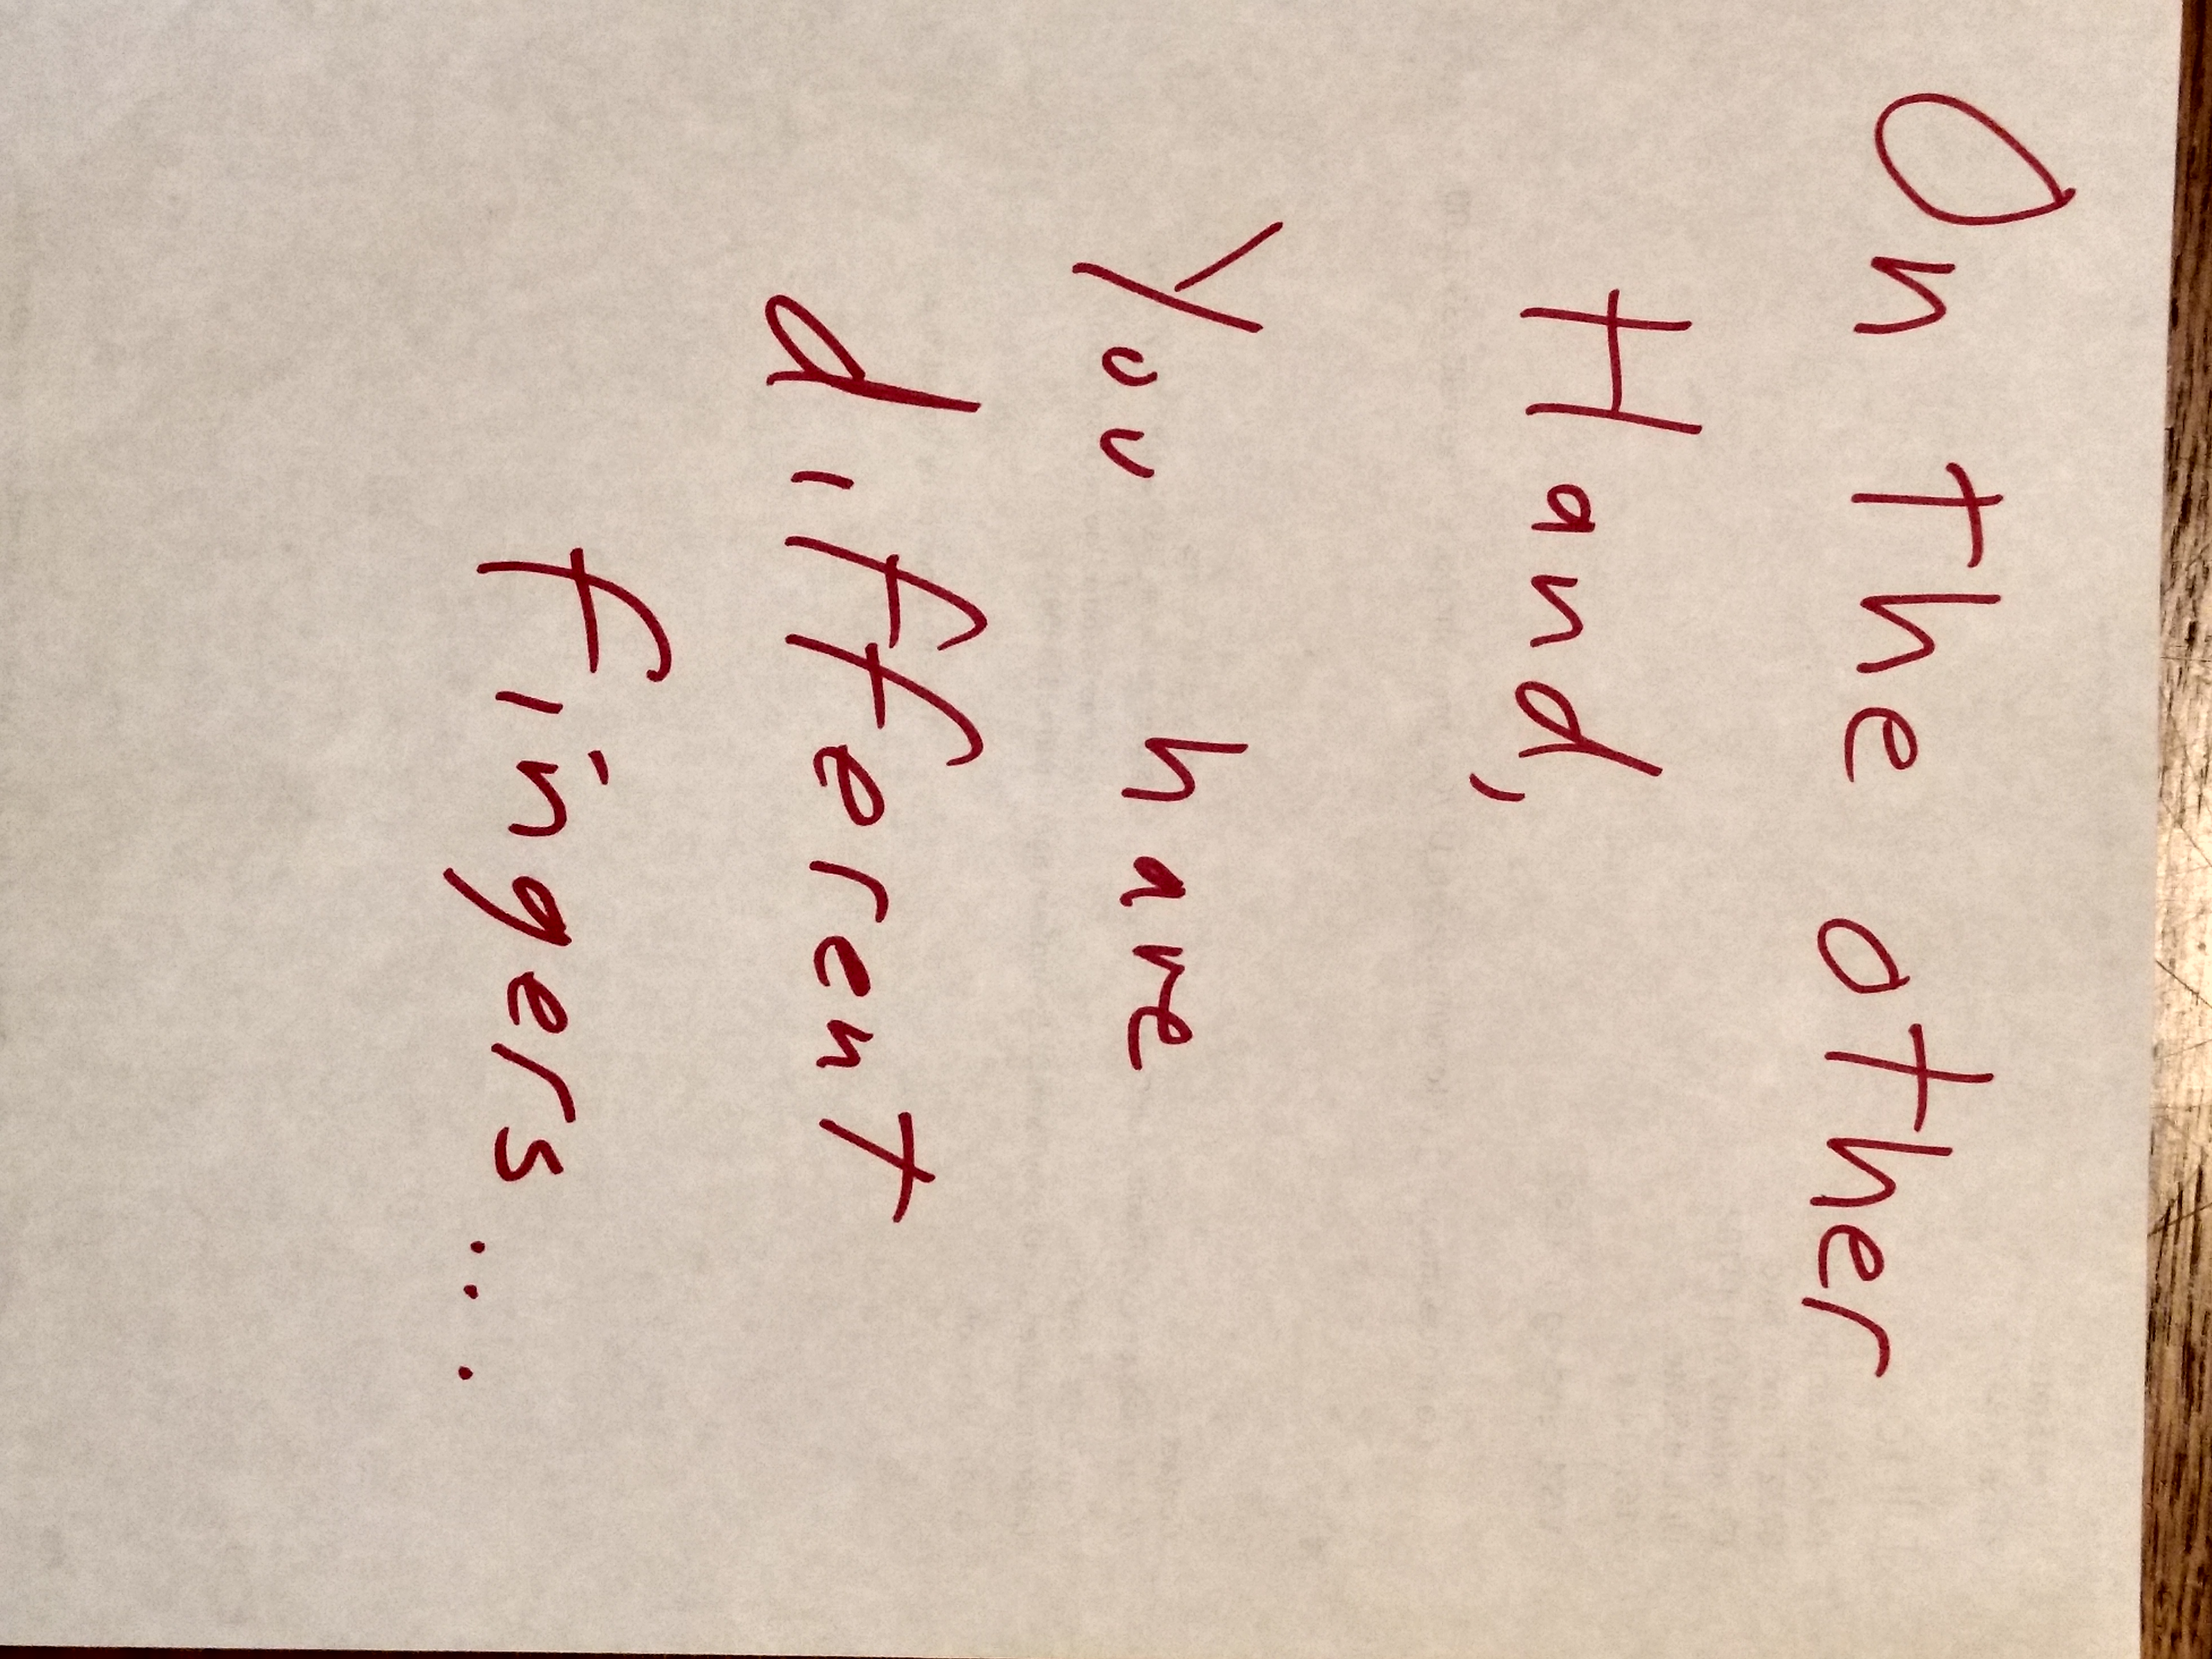 On the other
Hand,
You have
different
fingers...